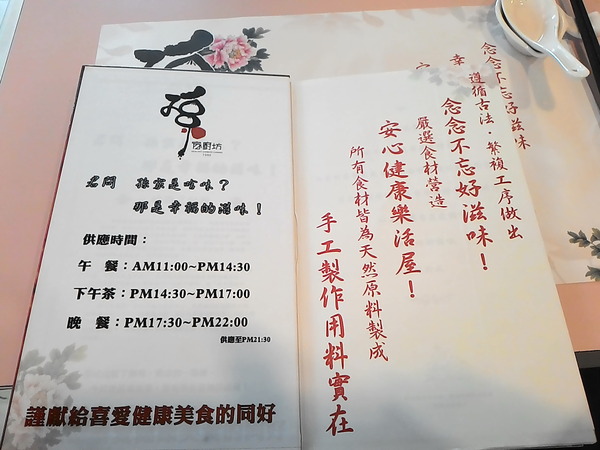 廚坊
若問 孫家是啥味？
那是幸福的滋味！
供應時間：
午 餐：AM11:00~PM14:30
下午茶：PM14:30~PM17:00
晚 餐：PM17:30~PM22:00
供應至PM21:30
謹獻給喜愛健康美食的同好
念念不忘好滋味
幸
遵循古法，繁複工序做出
念念不忘好滋味！
嚴選食材營造
安心健康樂活屋！
所有食材皆為天然原料製成
手工製作用料實在